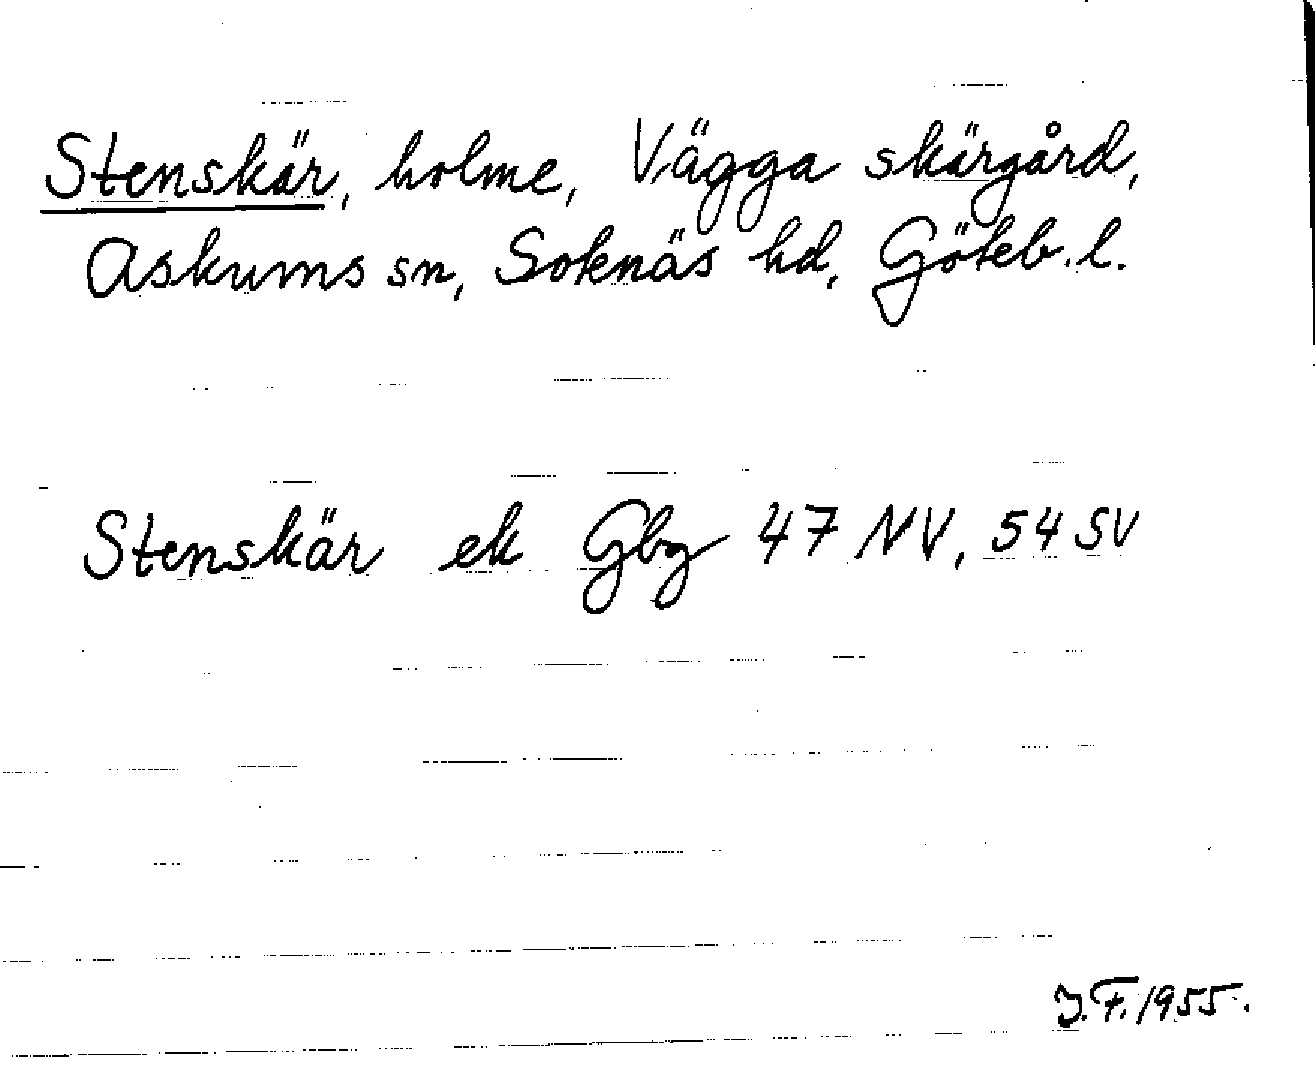 Stenskär, holme, Vägga skärgård,
Askums sn, Sotenäs hd, Göteb. l.
Stenskär ek Gbg 47 NV, 54 SV
J.F. 1955.